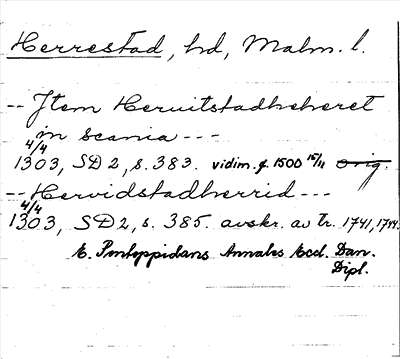 Herrestad, hd, Malm. l.
-- Item Heruitstadheheret
in scania ---
4/4
1303, SD 2, s. 383. vidim. f. 1500 15/11 orig.
-- Hervidstadherrid ---
4/4
1303, SD 2, s. 385. avskr. av tr. 1741, 1744.
E. Pontoppidans Annales Eccl. Dan.
Dipl.